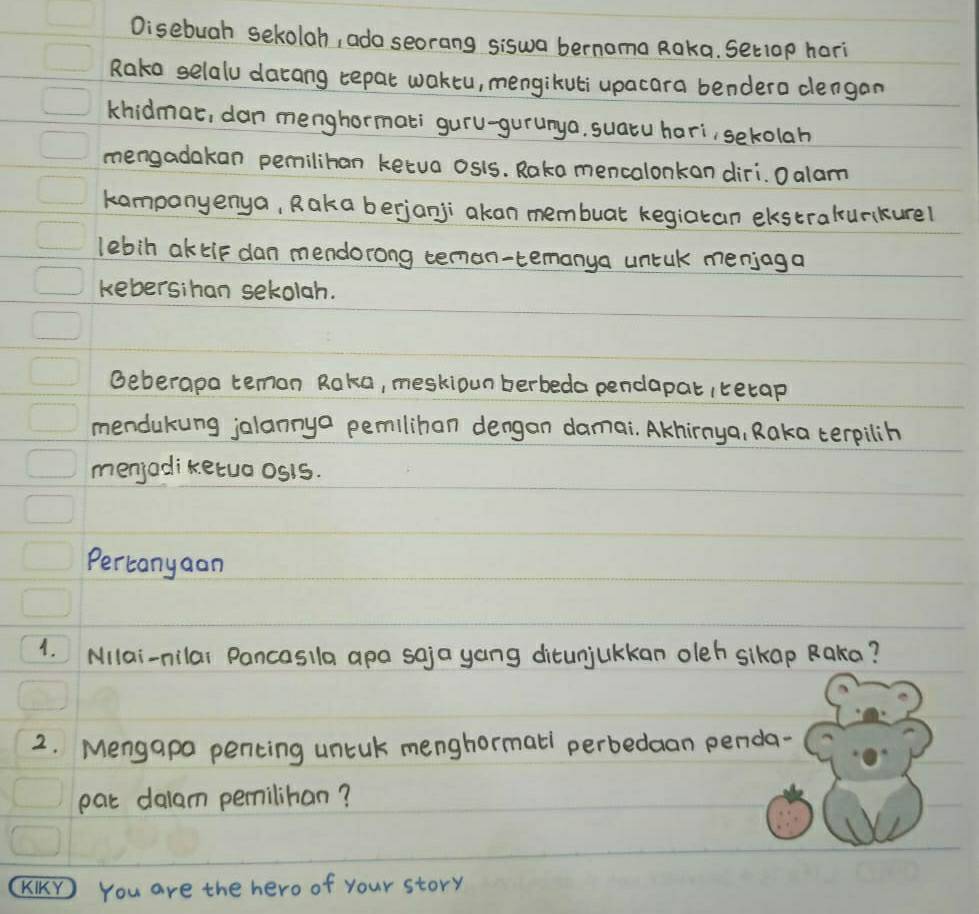 Disebuah sekolah, ada seorang siswa bernama Raka. Setiap hari
Raka selalu datang tepat waktu, mengikuti upacara bendera dengan
khidmat, dan menghormati guru-gurunya. suatu hari, sekolah
mengadakan pemilihan ketua OSIS. Raka mencalonkan diri. Dalam
kampanyenya, Raka berjanji akan membuat kegiatan ekstrakurikurel
lebih aktif dan mendorong teman-temanya untuk menjaga
kebersihan sekolah.
Beberapa teman Raka, meskipun berbeda pendapat, tetap
mendukung jalannya pemilihan dengan damai. Akhirnya, Raka terpilih
menjadi ketua OSIS.
Pertanyaan
1. Nilai-nilai Pancasila apa saja yang ditunjukkan oleh sikap Raka?
2. Mengapa penting untuk menghormati perbedaan penda-
pat dalam pemilihan?
KIKY You are the hero of your story